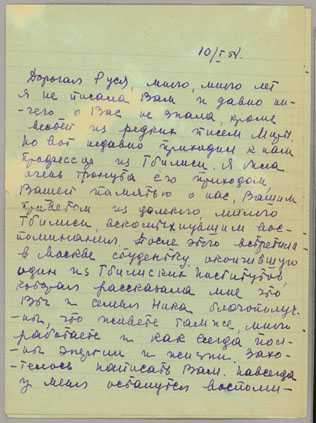 10/I 54.
Дорогая Руся, много, много лет
я не писала Вам и давно ни-
чего о Вас не знала, кроме
из редких писем
Но вот недавно приходил к нам
профессор из Тбилиси. Я была
очень тронута его приходом,
Вашей памятью о нас, Вашим
приветом из далекого, милого
Тбилиси, всколыхнувшим вос-
поминания. После этого встретила
в Москве студентку, окончившую
один из Тбилисских институтов,
которая рассказала мне что
Вы и семья Ника благополуч-
ны, что живете там же, много
работаете и как всегда пол-
ны энергии и жизни. Захо-
телось написать Вам. Навсегда
у меня останутся воспоми-